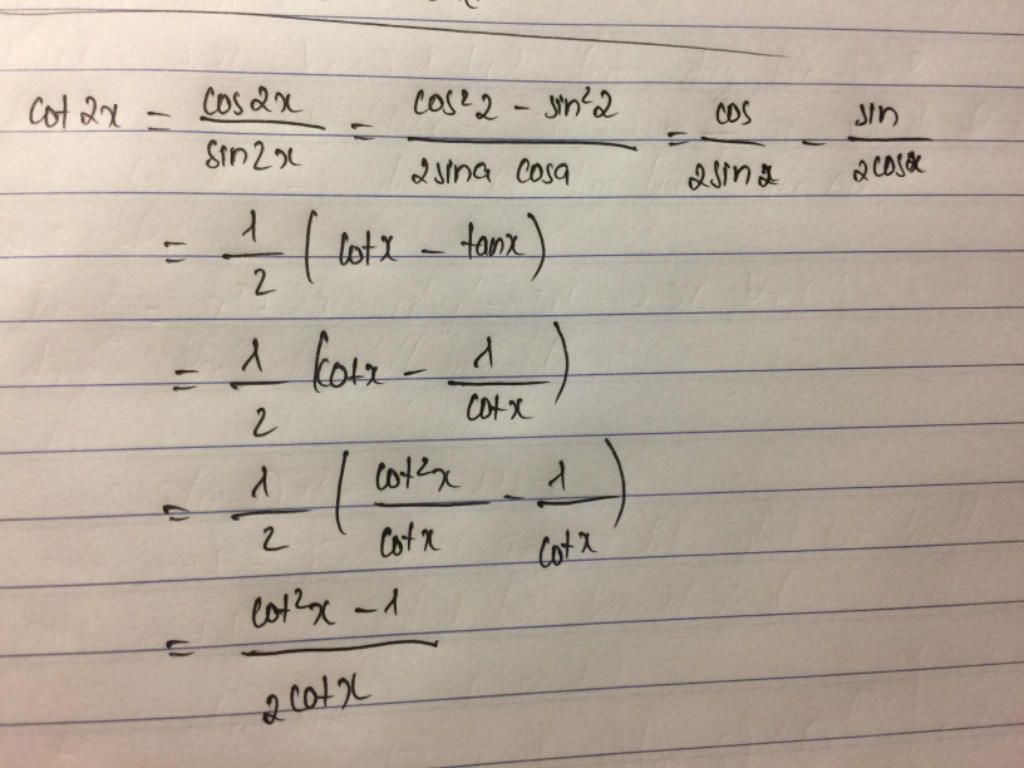 cot 2x = cos2x / sin2x = cos²2 - sin²2 / 2sina cosa = cos / 2sin x - sin / 2cosx
= 1/2 ( cotx - tanx )
= 1/2 ( cotx - 1/cotx )
= 1/2 ( cot²x / cotx - 1/cotx )
= cot²x - 1 / 2cotx